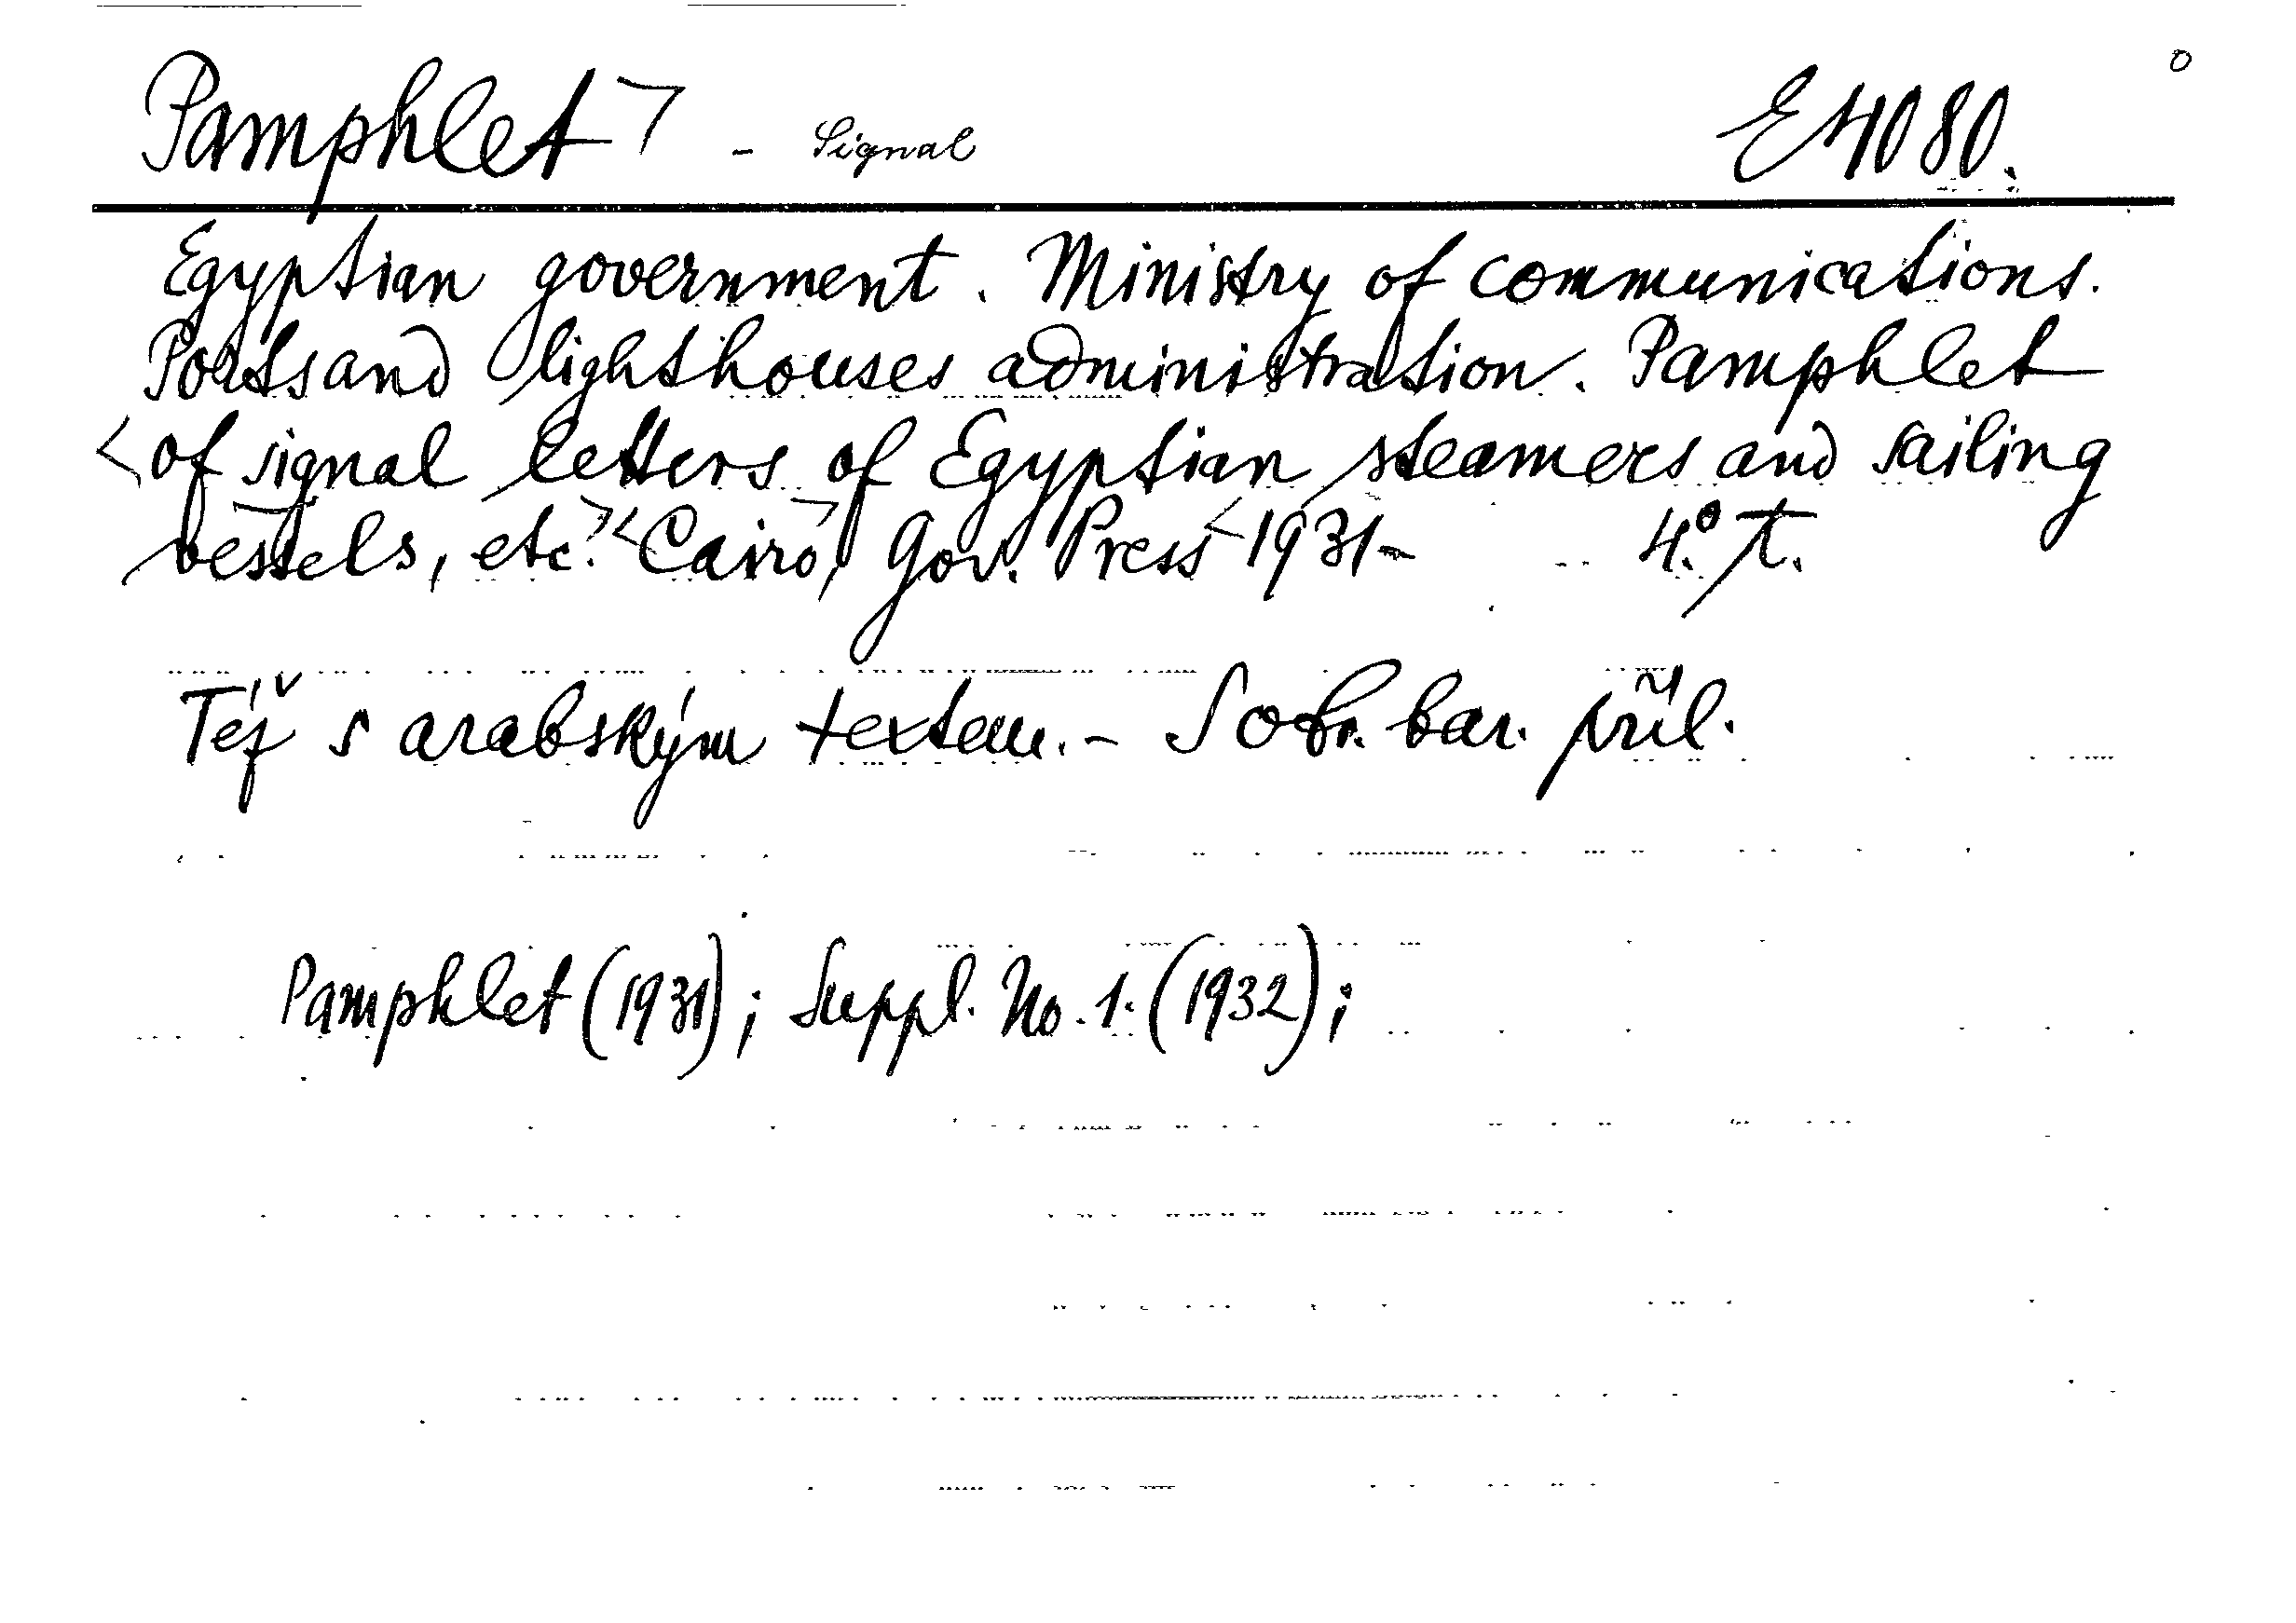 Pamphlet - Signal E 4080.
Egyptian government. Ministry of communications.
Ports and lighthouses administration. Pamphlet
of signal letters of Egyptian steamers and sailing
vessels, etc. Cairo, Gov. Press 1931- 4.° T.
Též s arabským textem. - S obr. bar. příl.
Pamphlet (1931); Suppl. No. 1. (1932);